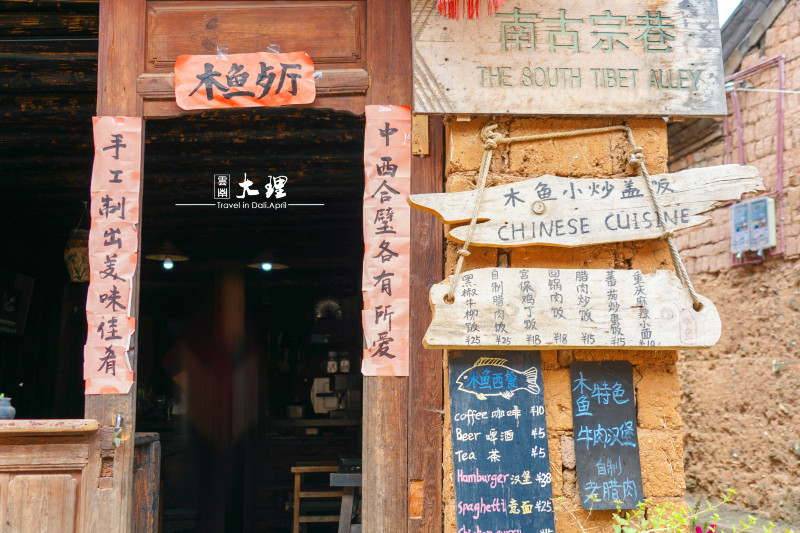 南古宗巷
THE SOUTH TIBET ALLEY
木鱼夕厅
中西合璧各有所爱
手工制出美味佳肴
雲幽
大理
Travel in Dali.April
木鱼小炒盖饭
CHINESE CUISINE
黑椒牛柳饭 ¥25
自制腊肉饭 ¥25
宫保鸡丁饭 ¥18
回锅肉饭 ¥18
腊肉炒饭 ¥15
番茄炒蛋饭 ¥15
重庆麻辣小面 ¥10
木鱼西餐
coffee 咖啡 ¥10
Beer 啤酒 ¥5
Tea 茶 ¥5
Hamburger 汉堡 ¥38
spaghetti 意面 ¥25
chicken curry
木鱼特色
牛肉汉堡
自制
老腊肉